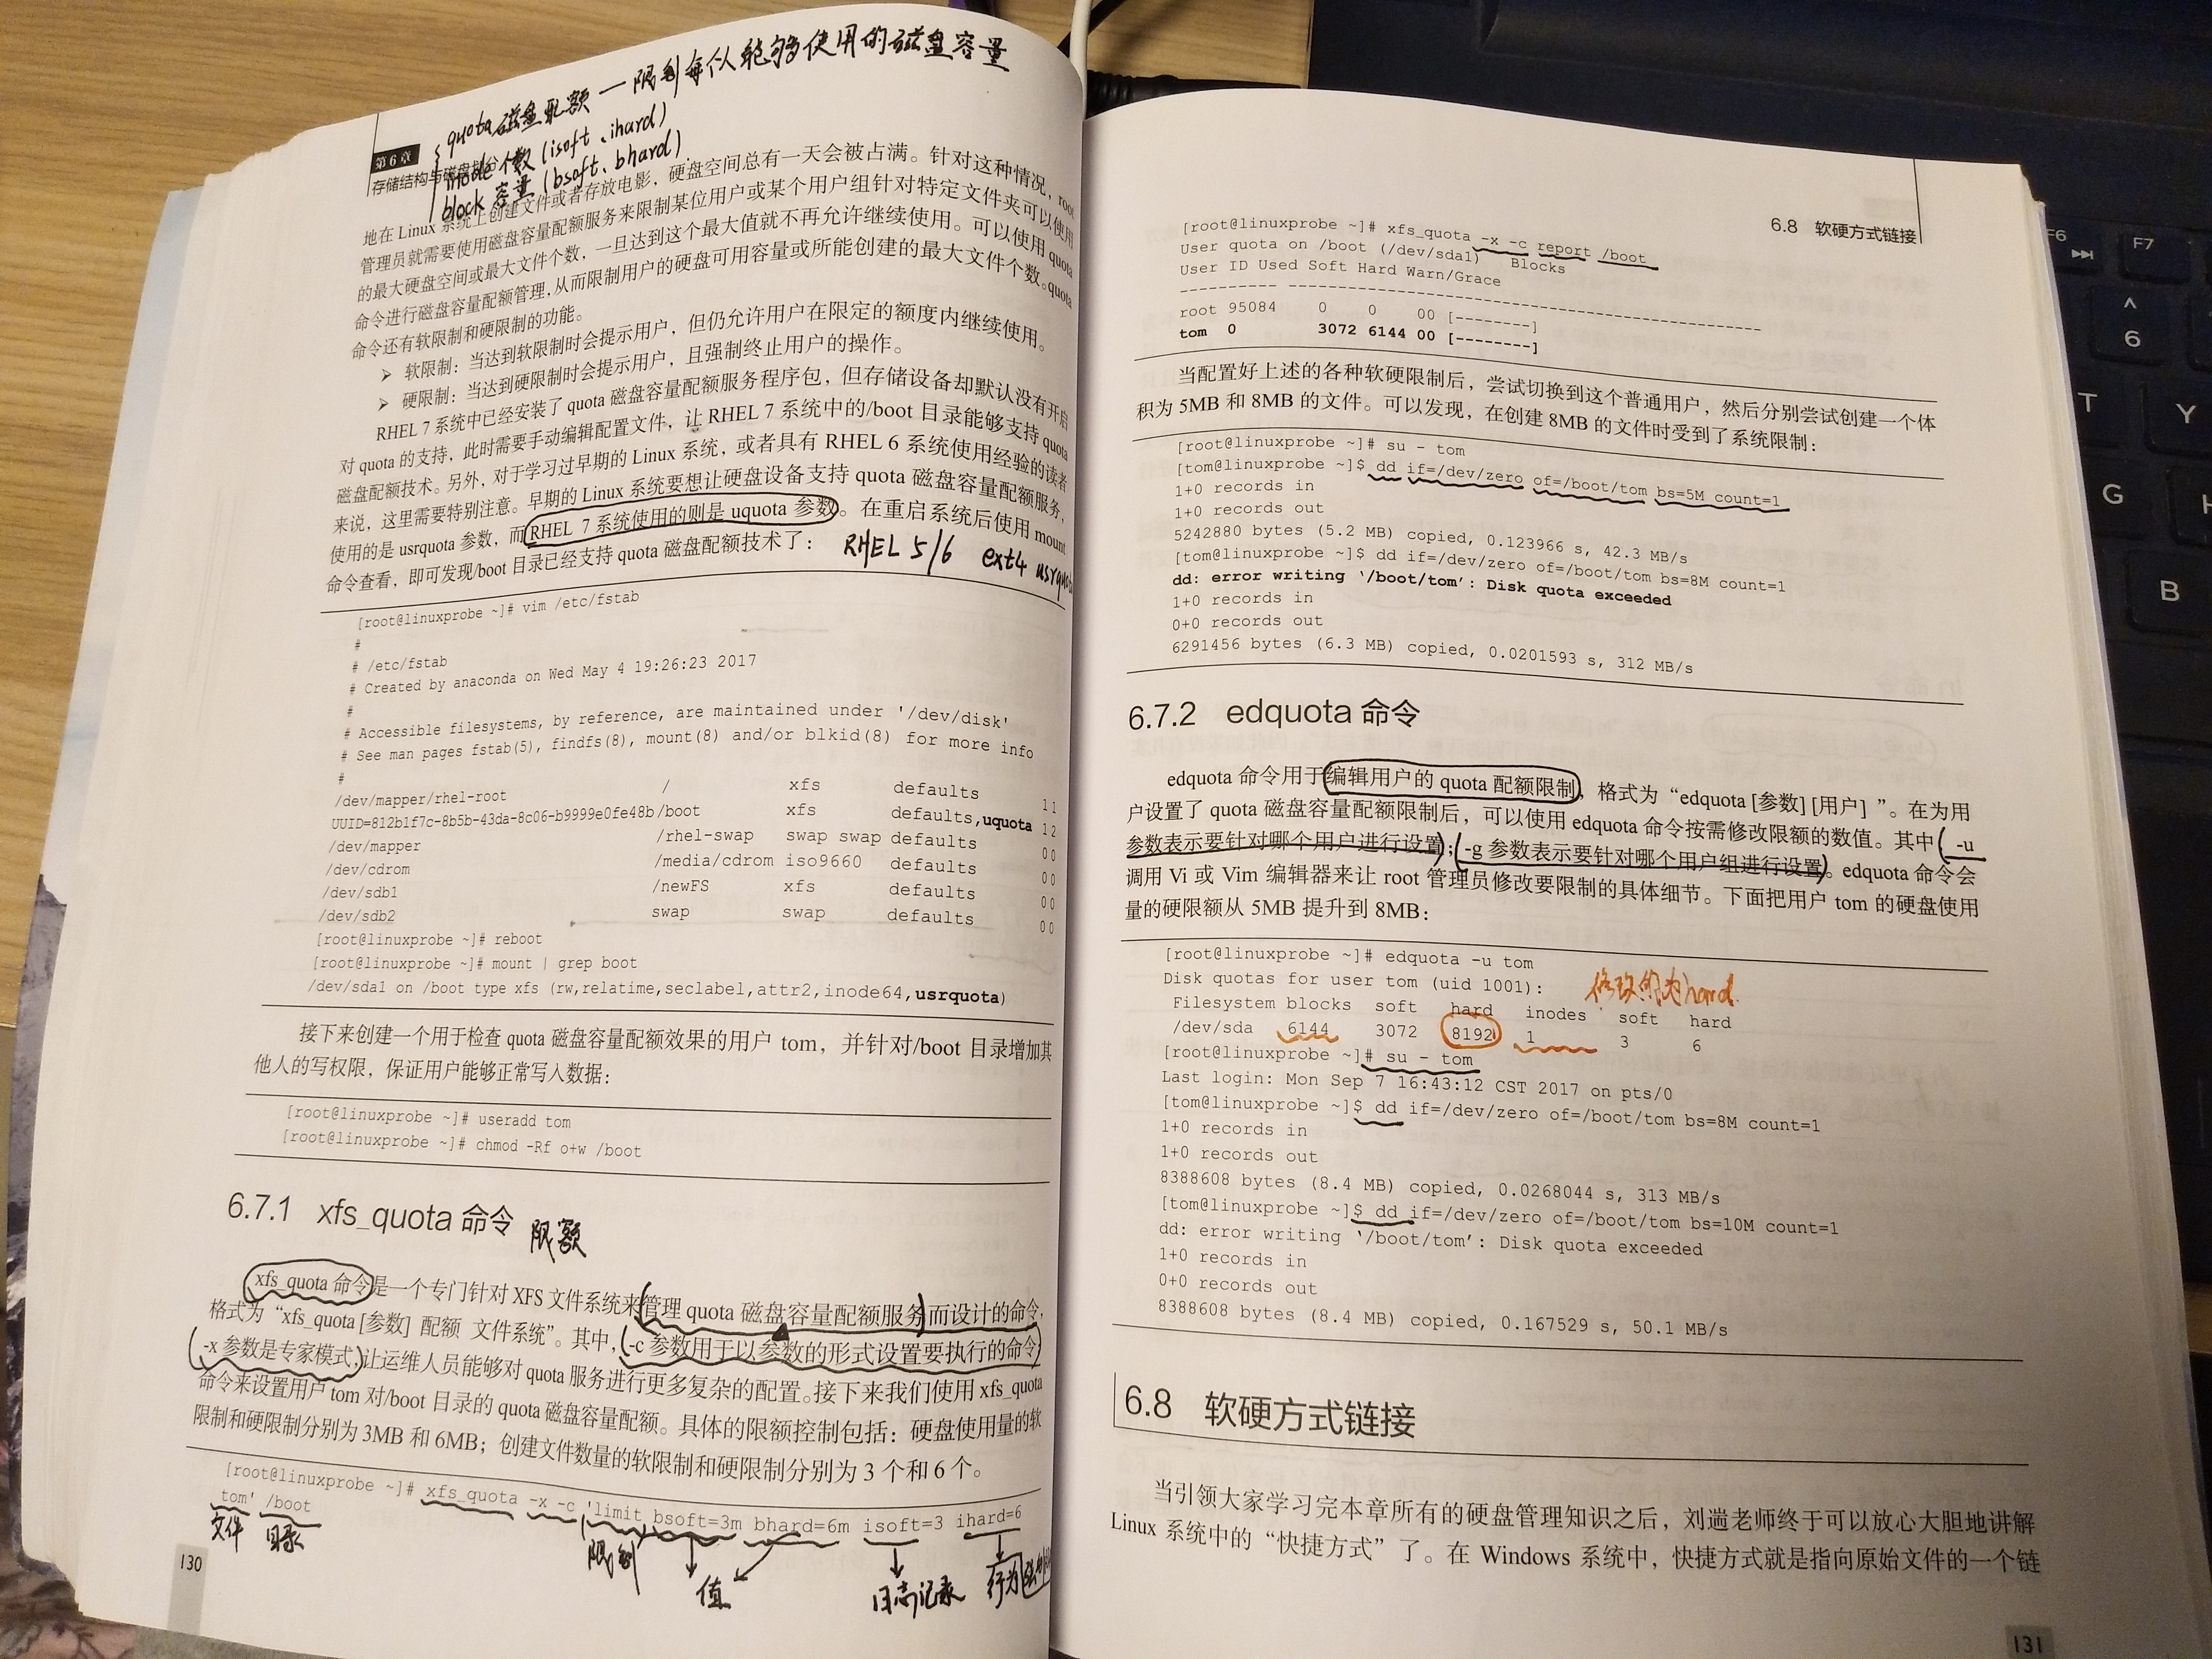 quota 磁盘配额 — 限制每个人能够使用的磁盘容量
inode 个数 (isoft、ihard)
block 容量 (bsoft、bhard).
第6章
存储结构与磁盘划分
地在 Linux 系统上创建文件或者存放电影，硬盘空间总有一天会被占满。针对这种情况，root
管理员就需要使用磁盘容量配额服务来限制某位用户或某个用户组针对特定文件夹可以使用
的最大硬盘空间或最大文件个数，一旦达到这个最大值就不再允许继续使用。可以使用 quota
命令进行磁盘容量配额管理，从而限制用户的硬盘可用容量或所能创建的最大文件个数。quota
命令还有软限制和硬限制的功能。
➢ 软限制：当达到软限制时会提示用户，但仍允许用户在限定的额度内继续使用。
➢ 硬限制：当达到硬限制时会提示用户，且强制终止用户的操作。
RHEL 7 系统中已经安装了 quota 磁盘容量配额服务程序包，但存储设备却默认没有开启
对 quota 的支持，此时需要手动编辑配置文件，让 RHEL 7 系统中的/boot 目录能够支持 quota
磁盘配额技术。另外，对于学习过早期的 Linux 系统，或者具有 RHEL 6 系统使用经验的读者
来说，这里需要特别注意。早期的 Linux 系统要想让硬盘设备支持 quota 磁盘容量配额服务，
使用的是 usrquota 参数，而 RHEL 7 系统使用的则是 uquota 参数。在重启系统后使用 mount
命令查看，即可发现/boot 目录已经支持 quota 磁盘配额技术了：
RHEL 5/6 ext4 usrquota
[root@linuxprobe ~]# vim /etc/fstab
#
# /etc/fstab
# Created by anaconda on Wed May 4 19:26:23 2017
#
# Accessible filesystems, by reference, are maintained under '/dev/disk'
# See man pages fstab(5), findfs(8), mount(8) and/or blkid(8) for more info
#
/dev/mapper/rhel-root / xfs defaults 1 1
UUID=812b1f7c-8b5b-43da-8c06-b9999e0fe48b /boot xfs defaults,uquota 1 2
/dev/mapper /rhel-swap swap swap defaults 0 0
/dev/cdrom /media/cdrom iso9660 defaults 0 0
/dev/sdb1 /newFS xfs defaults 0 0
/dev/sdb2 swap swap defaults 0 0
[root@linuxprobe ~]# reboot
[root@linuxprobe ~]# mount | grep boot
/dev/sda1 on /boot type xfs (rw,relatime,seclabel,attr2,inode64,usrquota)
接下来创建一个用于检查 quota 磁盘容量配额效果的用户 tom，并针对/boot 目录增加其
他人的写权限，保证用户能够正常写入数据：
[root@linuxprobe ~]# useradd tom
[root@linuxprobe ~]# chmod -Rf o+w /boot
6.7.1 xfs_quota 命令
限额
xfs_quota 命令是一个专门针对 XFS 文件系统来管理 quota 磁盘容量配额服务而设计的命令，
格式为“xfs_quota [参数] 配额 文件系统”。其中，-c 参数用于以参数的形式设置要执行的命令；
-x 参数是专家模式，让运维人员能够对 quota 服务进行更多复杂的配置。接下来我们使用 xfs_quota
命令来设置用户 tom 对/boot 目录的 quota 磁盘容量配额。具体的限额控制包括：硬盘使用量的软
限制和硬限制分别为 3MB 和 6MB；创建文件数量的软限制和硬限制分别为 3 个和 6 个。
[root@linuxprobe ~]# xfs_quota -x -c 'limit bsoft=3m bhard=6m isoft=3 ihard=6
tom' /boot
文件 目录 限制 值 日志记录
130
6.8 软硬方式链接
[root@linuxprobe ~]# xfs_quota -x -c report /boot
User quota on /boot (/dev/sda1) Blocks
User ID Used Soft Hard Warn/Grace
---------- --------------------------------------------------
root 95084 0 0 00 [--------]
tom 0 3072 6144 00 [--------]
当配置好上述的各种软硬限制后，尝试切换到这个普通用户，然后分别尝试创建一个体
积为 5MB 和 8MB 的文件。可以发现，在创建 8MB 的文件时受到了系统限制：
[root@linuxprobe ~]# su - tom
[tom@linuxprobe ~]$ dd if=/dev/zero of=/boot/tom bs=5M count=1
1+0 records in
1+0 records out
5242880 bytes (5.2 MB) copied, 0.123966 s, 42.3 MB/s
[tom@linuxprobe ~]$ dd if=/dev/zero of=/boot/tom bs=8M count=1
dd: error writing ‘/boot/tom’: Disk quota exceeded
1+0 records in
0+0 records out
6291456 bytes (6.3 MB) copied, 0.0201593 s, 312 MB/s
6.7.2 edquota 命令
edquota 命令用于编辑用户的 quota 配额限制，格式为“edquota [参数] [用户] ”。在为用
户设置了 quota 磁盘容量配额限制后，可以使用 edquota 命令按需修改限额的数值。其中，-u
参数表示要针对哪个用户进行设置；-g 参数表示要针对哪个用户组进行设置。edquota 命令会
调用 Vi 或 Vim 编辑器来让 root 管理员修改要限制的具体细节。下面把用户 tom 的硬盘使用
量的硬限额从 5MB 提升到 8MB：
[root@linuxprobe ~]# edquota -u tom
Disk quotas for user tom (uid 1001):
修改的为hard.
Filesystem blocks soft hard inodes soft hard
/dev/sda 6144 3072 8192 1 3 6
[root@linuxprobe ~]# su - tom
Last login: Mon Sep 7 16:43:12 CST 2017 on pts/0
[tom@linuxprobe ~]$ dd if=/dev/zero of=/boot/tom bs=8M count=1
1+0 records in
1+0 records out
8388608 bytes (8.4 MB) copied, 0.0268044 s, 313 MB/s
[tom@linuxprobe ~]$ dd if=/dev/zero of=/boot/tom bs=10M count=1
dd: error writing ‘/boot/tom’: Disk quota exceeded
1+0 records in
0+0 records out
8388608 bytes (8.4 MB) copied, 0.167529 s, 50.1 MB/s
6.8 软硬方式链接
当引领大家学习完本章所有的硬盘管理知识之后，刘遄老师终于可以放心大胆地讲解
Linux 系统中的“快捷方式”了。在 Windows 系统中，快捷方式就是指向原始文件的一个链
131
F6
F7
^
6
T
Y
G
H
B